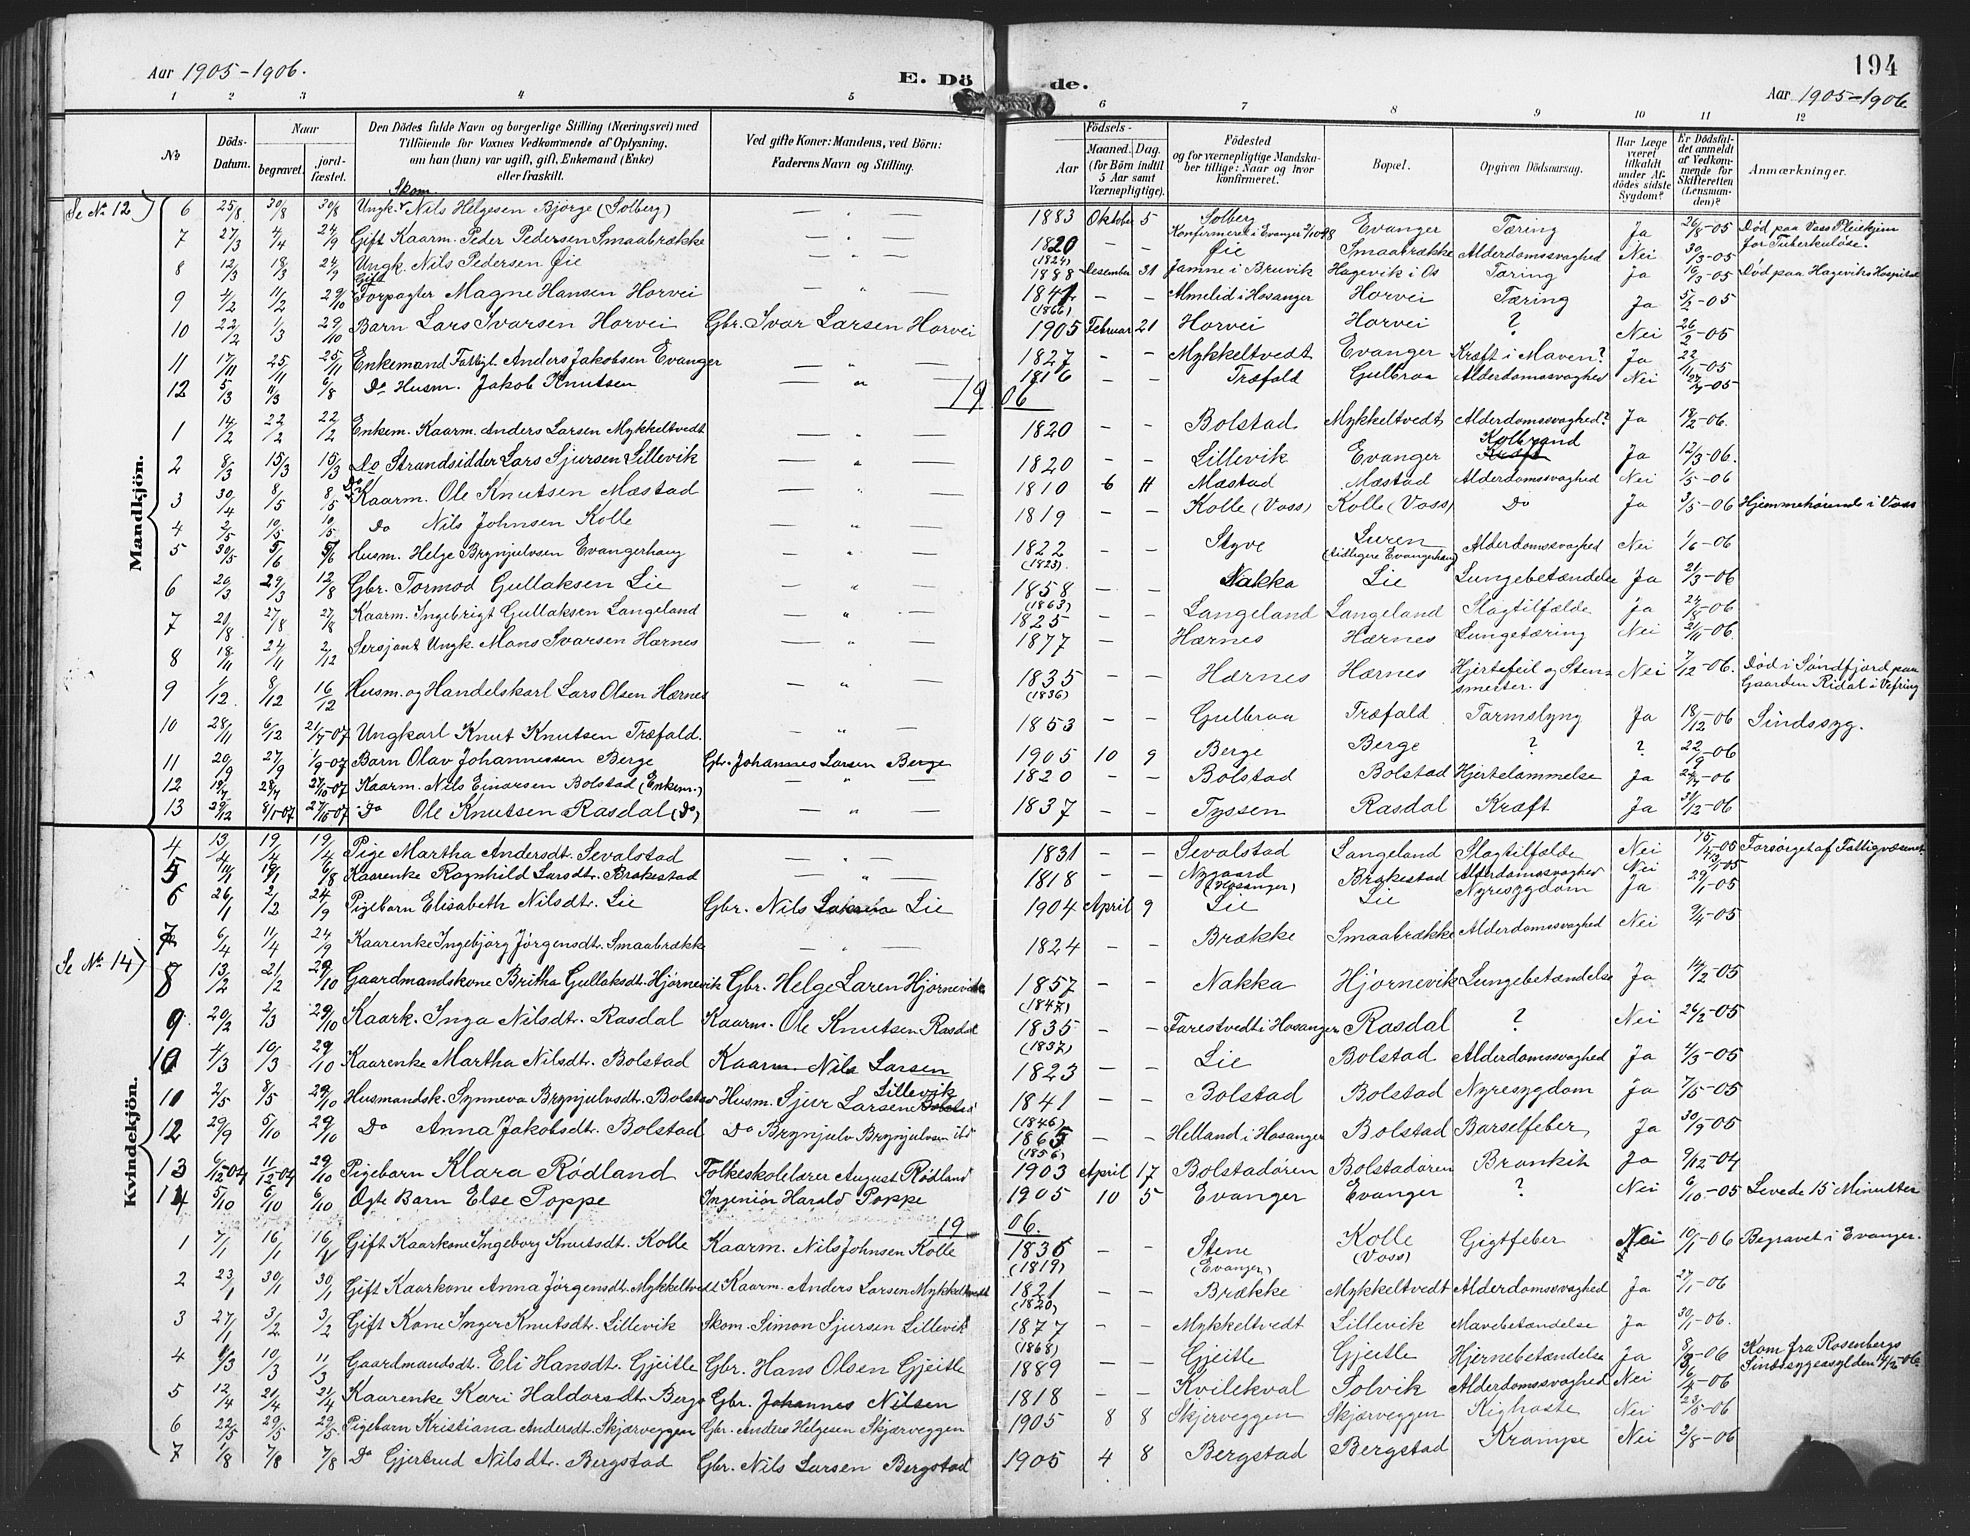 194
Aar 1905-1906.
E. Dö de.
Aar 1905-1906.
1 2 3 4 5 6 7 8 9 10 11 12
No
Döds-Datum.
Naar
begravet.
jord-fæstet.
Den Dödes fulde Navn og borgerlige Stilling (Næringsvei) med
Tilföiende for Voxnes Vedkommende af Oplysning,
om han (hun) var ugift, gift, Enkemand (Enke)
eller fraskilt.
Ved gifte Koner: Mandens, ved Börn:
Faderens Navn og Stilling.
Födsels-
Aar
Maaned. Dag.
(for Börn indtil
5 Aar samt
Værnepligtige).
Födested
og for værnepligtige Mandska-
ber tillige: Naar og hvor
konfirmeret.
Bopæl.
Opgiven Dödsaarsag.
Har Læge
været
tilkaldt
under Af-
dödes sidste
Sygdom?
Er Dödsfal-
det anmeldt
af Vedkom-
mende for
Skifteretten
(Lensman-
den)?
Anmærkninger.
Mandkjön.
Se No 12)
6 25/8 30/8 30/8 Ungk. Skom. Nils Helgesen Bjørge (Solberg) — " — 1883 Oktober 5 Solberg Konfirmeret i Evanger Evanger Tæring Ja 26/8-05 Død paa Voss Pleiehjem for Tuberkuløse.
7 27/3 4/4 24/9 Gift Kaarm. Peder Pedersen Smaabrække — " — 1820 (1824) — — Øie Smaabrække Alderdomssvaghed Nei 30/3-05
8 12/3 18/3 24/9 Ungk. Nils Pedersen Øie — " — 1888 Desember 31 Jamne i Bruvik Hagevik i Os Tæring Ja 16/3-05 Død paa Hageviks Hospital
9 4/2 11/2 29/10 Gift Forpagter Magne Hansen Horvei — " — 1841 (1866) — — Almelid i Hosanger Horvei Tæring Ja 5/2-05
10 22/2 1/3 29/10 Barn Lars Ivarsen Horvei Gbr. Ivar Larsen Horvei 1905 Februar 21 Horvei Horvei ? Nei 26/2-05
11 17/11 25/11 25/11 Enkemand Fattigl. Anders Jakobsen Evanger — " — 1827 — — Mykkeltvedt Evanger Kræft i Maven? Ja 22/11-05
12 5/3 11/3 6/8 Do Husm. Jakob Knutsen — " — 1816 — — Træfald Gulbraa Alderdomssvaghed Nei 27/7-05
1906
1 14/2 22/2 22/2 Enkem. Kaarm. Anders Larsen Mykkeltvedt — " — 1820 — — Bolstad Mykkeltvedt Alderdomssvaghed? Ja 19/2-06.
2 8/3 15/3 15/3 Do Strandsidder Lars Sjursen Lillevik — " — 1820 — — Lillevik Evanger Kolbrand Kræft Ja 12/3-06.
3 30/4 8/5 8/5 Do Kaarm. Ole Knutsen Mæstad — " — 1810 6 11 Mæstad Mæstad Alderdomssvaghed Nei 1/5-06
4 2/5 10/5 10/5 Do Nils Johnsen Kolle — " — 1819 — — Kolle (Voss) Kolle (Voss) Do Ja 3/5-06 Hjemmehørende i Voss
5 30/5 5/6 5/6 Husm. Helge Brynjulvsen Evangerhaug — " — 1822 (1823) — — Styve Luren (tidligere Evangerhaug) Alderdomssvaghed Nei 1/6-06
6 20/3 29/3 12/8 Gbr. Tormod Gullaksen Lie — " — 1858 (1863) — — Nakka Lie Lungebetændelse Ja 21/3-06
7 20/8 27/8 27/8 Kaarm. Ingebrigt Gullaksen Langeland — " — 1825 — — Langeland Langeland Slagtilfælde Ja 24/8-06
8 18/11 24/11 2/12 Sersjant Ungk. Mons Ivarsen Hærnes — " — 1877 — — Hærnes Hærnes Lungetæring Nei 21/11-06
9 1/12 8/12 16/12 Husm. og Handelskarl Lars Olsen Hærnes — " — 1835 (1836) — — Hærnes Hærnes Hjertefeil og Stensmerter. Nei 7/12-06. Død i Søndfjord paa Gaarden Ridal i Vefring
10 28/11 6/12 21/7-07 Ungkarl Knut Knutsen Træfald. — " — 1853 — — Gulbraa Træfald Tarmslyng Ja 18/12-06 Sindssyg.
11 20/9 27/9 1/9-07 Barn Olav Johannessen Berge Gbr. Johannes Larsen Berge 1905 10 9 Berge Berge ? ? 22/9-06
12 19/7 28/7 27/10-07 Kaarm. Nils Einarsen Bolstad (Enkem.) — " — 1820 — — Bolstad Bolstad Hjertelammelse Ja 24/7-06
13 29/12 8/1-07 27/10-07 Do Ole Knutsen Rasdal (Do) — " — 1837 — — Tyssen Rasdal Kræft Ja 31/12-06
Kvindekjön.
Se No 14)
4 13/4 19/4 19/4 Pige Martha Andersdt. Sevalstad — " — 1831 — — Sevalstad Langeland Slagtilfælde Nei 15/4-05 Forsørget af Fattigvæsenet.
5 14/1 19/1 6/8 Kaarenke Ragnhild Larsdt. Brakestad — " — 1818 — — Nygaard (Hosanger) Brakestad Alderdomssvaghed Nei
6 26/1 2/2 24/9 Pigebarn Elisabeth Nilsdtr. Lie Gbr. Nils Lie 1904 April 9 Lie Lie Nyresygdom Ja 29/1-05
7 6/4 11/4 24/9 Kaarenke Ingebjørg Jørgensdt. Smaabrække — " — 1824 Brække Smaabrække Alderdomssvaghed Nei 9/4-05
8 13/2 21/2 29/10 Gaardmandskone Britha Gullaksdt. Hjørnevik Gbr. Helge Laren Hjørnevik 1857 (1847) — — Nakka Hjørnevik Lungebetændelse Ja 14/2-05
9 20/2 2/3 29/10 Kaark. Inga Nilsdt. Rasdal Kaarm. Ole Knutsen Rasdal 1835 (1837) — — Farestvedt i Hosanger Rasdal ? Nei 26/2-05
10 4/3 10/3 29/10 Kaarenke Martha Nilsdt. Bolstad Kaarm. Nils Larsen 1823 — — Lie Bolstad Alderdomssvaghed Ja 4/3-05
10 2/5 8/5 29/10 Husmandsk. Synneva Brynjulvsdt. Bolstad Husm. Sjur Larsen Lillevik Bolstad 1841 (1846) — — Bolstad Bolstad Nyresygdom Ja 7/5-05
12 29/9 5/10 29/10 Do Anna Jakobsdt. Bolstad Do Brynjulv Brynjulvsen ibd 1865 (1856) — — Helland i Hosanger Bolstad Barselfeber Ja 30/9-05
13 6/12 04 11/12-04 29/10 Pigebarn Klara Rødland Folkeskolelærer August Rødland 1903 April 17 Bolstadøren Bolstadøren Bronkit Ja 9/12-04
14 5/10 6/10 6/10 Ægte Barn Else Poppe Ingeniør Harald Poppe 1905 10 5 Evanger Evanger ? Nei 6/10-05 Levede 15 Minutter
1906.
1 7/1 16/1 16/1 Gift Kaarkone Ingeborg Knutsdt. Kolle Kaarm. Nils Johnsen Kolle 1835 (1819) — — Stene (Evanger) Kolle (Voss) Gigtfeber Nei 10/1-06 Begravet i Evanger.
2 23/1 30/1 30/1 Gift Kaarkone Anna Jørgensdt. Mykkeltvedt Kaarm. Anders Larsen Mykkeltvedt 1821 (1820) — — Brække Mykkeltvedt Alderdomssvaghed Ja 27/1-06
3 27/1 3/2 3/2 Gift Kone Inger Knutsdt. Lillevik Skom. Simon Sjursen Lillevik 1877 (1868) — — Mykkeltvedt Lillevik Mavebetændelse Ja 30/1-06.
4 4/3 10/3 11/3 Gaardmandsdt. Eli Hansdt. Gjeitle Gbr. Hans Olsen Gjeitle 1889 — — Gjeitle Gjeitle Hjernebetændelse Ja 8/3-06 Kom fra Rosenbergs Sindssygeasyl den
5 12/4 21/4 21/4 Kaarenke Kari Haldorsdt. Berge Gbr. Johannes Nilsen 1818 — — Kvilekval Solvik Alderdomssvaghed Nei 16/4-06
6 22/5 29/5 29/5 Pigebarn Kristiana Andersdt. Skjærveggen Gbr. Anders Helgesen Skjærveggen 1905 8 8 Skjerveggen Skjærveggen Kighoste Nei 23/5-06
7 1/8 7/8 7/8 Do Gjertrud Nilsdt. Bergstad Gbr. Nils Larsen Bergstad 1905 4 8 Bergstad Bergstad Krampe Nei 2/8-06